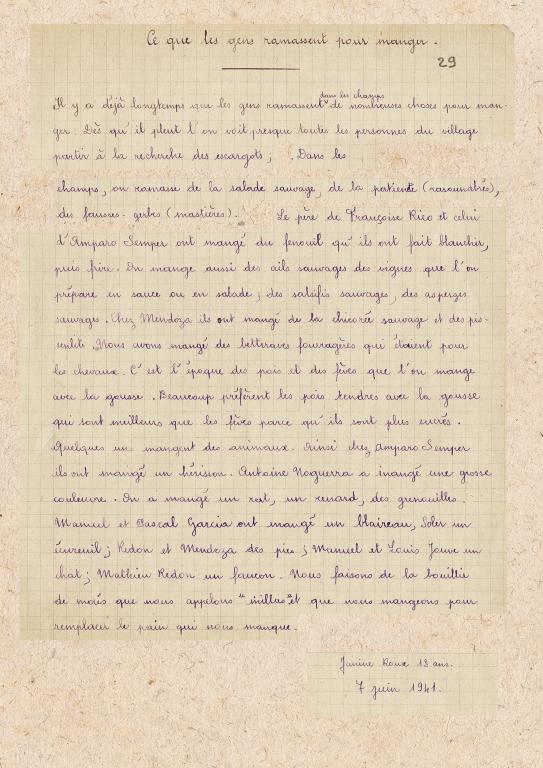 Ce que les gens ramassent pour manger.
29
dans les champs
Il y a déjà longtemps que les gens ramassent de nombreuses choses pour man-
ger. Dès qu'il pleut l'on voit presque toutes les personnes du village
partir à la recherche des escargots ; . Dans les
champs, on ramasse de la salade sauvage, de la patiente (rasoumatres),
des fausses-gerbes (mastières). Le père de Françoise Rico et celui
d'Amparo Semper ont mangé du fenouil qu'ils ont fait blanchir,
puis frire. On mange aussi des ails sauvages des vignes que l'on
prépare en sauce ou en salade ; des salsifis sauvages, des asperges
sauvages. Chez Mendoza ils ont mangé de la chicorée sauvage et des pis-
senlits. Nous avons mangé des betteraves fourragères qui étaient pour
les chevaux. C'est l'époque des pois et des fèves que l'on mange
avec la gousse. Beaucoup préfèrent les pois tendres avec la gousse
qui sont meilleurs que les fèves parce qu'ils sont plus sucrés.
Quelques un mangent des animaux. Ainsi chez Amparo Semper
ils ont mangé un hérision. Antoine Noguerra a mangé une grosse
couleuvre. On a mangé un rat, un renard, des grenouilles.
Manuel et Pascal Garcia ont mangé un blaireau, Soler un
écureuil ; Redon et Mendoza des pies ; Manuel et Louis Jouve un
chat ; Mathieu Redon un faucon. Nous faisons de la bouillie
de maïs que nous appelons "millas" et que nous mangeons pour
remplacer le pain qui nous manque.
Janine Roux 13 ans.
7 juin 1941.